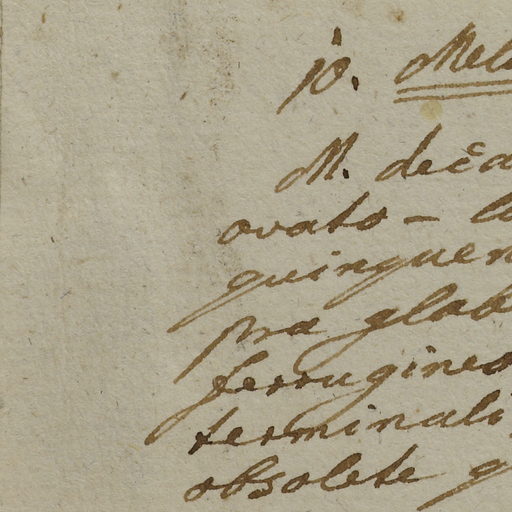 10. Mel
M. deca
ovato - la
quinquen
pra glab
ferrugineo
terminali
obsolete q